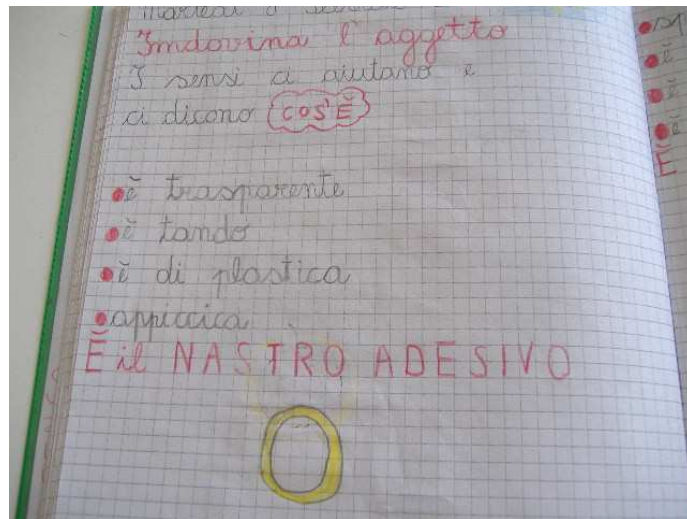 Indovina l'aggetto
I sensi ci aiutano e
ci dicono COS'È
è trasparente
è tando
è di plastica
appiccica
È il NASTRO ADESIVO
è
è
è
È